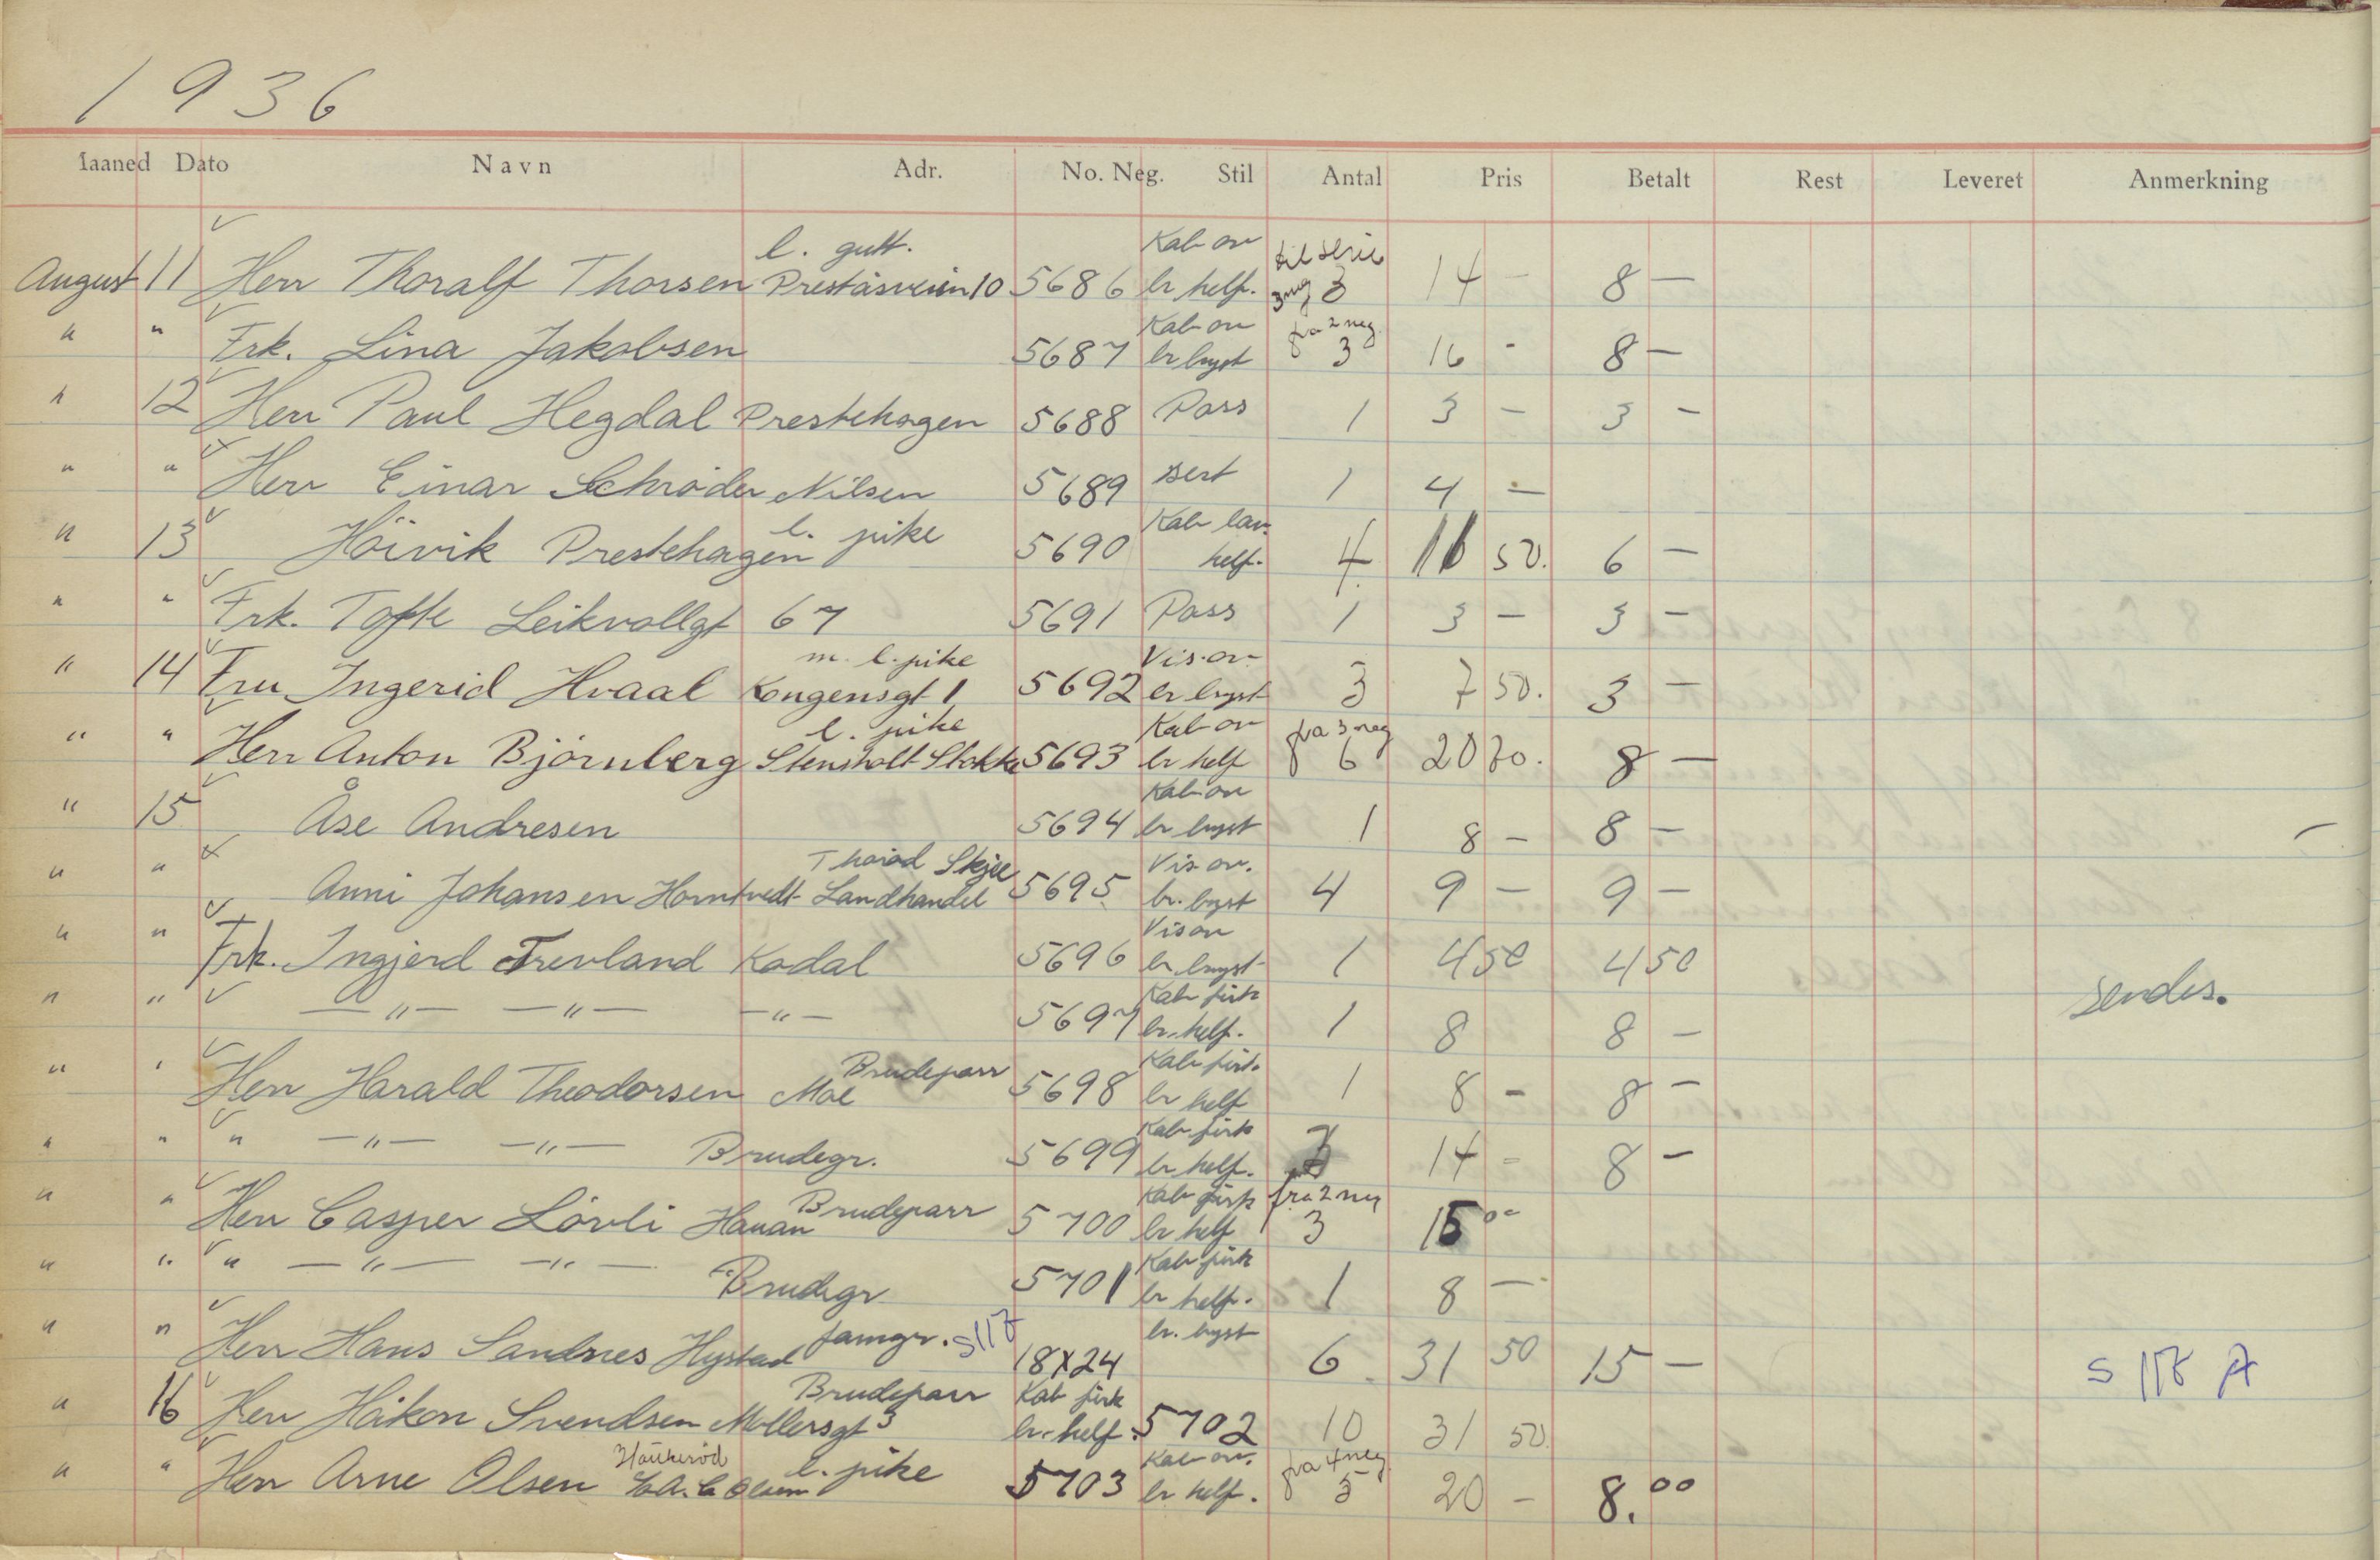 1936
Maaned Dato Navn Adr. No. Neg. Stil Antal Pris Betalt Rest Leveret Anmerkning
l. gutt. Kab ov til serie
August 11 Herr Thoralf Thorsen Preståsveien 10 5686 br helf. 3 neg 3 14 - 8 -
Kab ov fra 2 neg
" " Frk. Lina Jakobsen 5687 br bryst 3 16 - 8 -
" 12 Herr Paul Hegdal Prestehagen 5688 Pass 1 3 - 3 -
" " Herr Einar Schrøder Nilsen 5689 sert 1 4 -
l. pike Kab lav.
" 13 Höivik Prestehagen 5690 helf. 4 11 50. 6 -
" " Frk. Tofte Leikvollgt 67 5691 Pass 1 3 - 3 -
m. l. pike Vis. ov.
" 14 Fru Ingerid Hvaal Kongensgt 1 5692 br bryst 3 7 50. 3 -
l. pike Kab ov fra 3 neg
" " Herr Anton Björnberg Stensholt Stokke 5693 br helf 6 20 70. 8 -
Kab ov
" 15 Åse Andresen 5694 br bryst 1 8 - 8 - -
Skjee Vis ov.
" " Anni Johansen Horntvedt Landhandel 5695 br. bryst 4 9 - 9 -
Vis ov
" " Frk. Ingjerd Trevland Kodal 5696 br. bryst 1 4 50 4 50
Kab firk
" " -"- -"- -"- 5697 br. helf. 1 8 8 - sendes.
Brudeparr Kab firk.
" " Herr Harald Theodorsen Moe 5698 br helf 1 8 - 8 -
Kab firk
" " " -"- -"- Brudegr. 5699 br helf. 14 - 8 -
Brudeparr Kab firk fra 2 neg
" " Herr Casper Lövli Hauan 5700 br helf 3 15 00
Kab firk
" " " -"- -"- Brudegr 5701 br helf. 1 8 -
famgr. br. bryst
" " Herr Hans Sandnes Hystad 18X24 6 31 50 15 -
Brudeparr Kab firk
" 16 Herr Håkon Svendsen Møllersgt 3 br. helf. 5702 10 31 50
Haukeröd l. pike Kab ov. fra 4 neg
" " Herr Arne Olsen 5703 br helf. 5 20 - 8.00